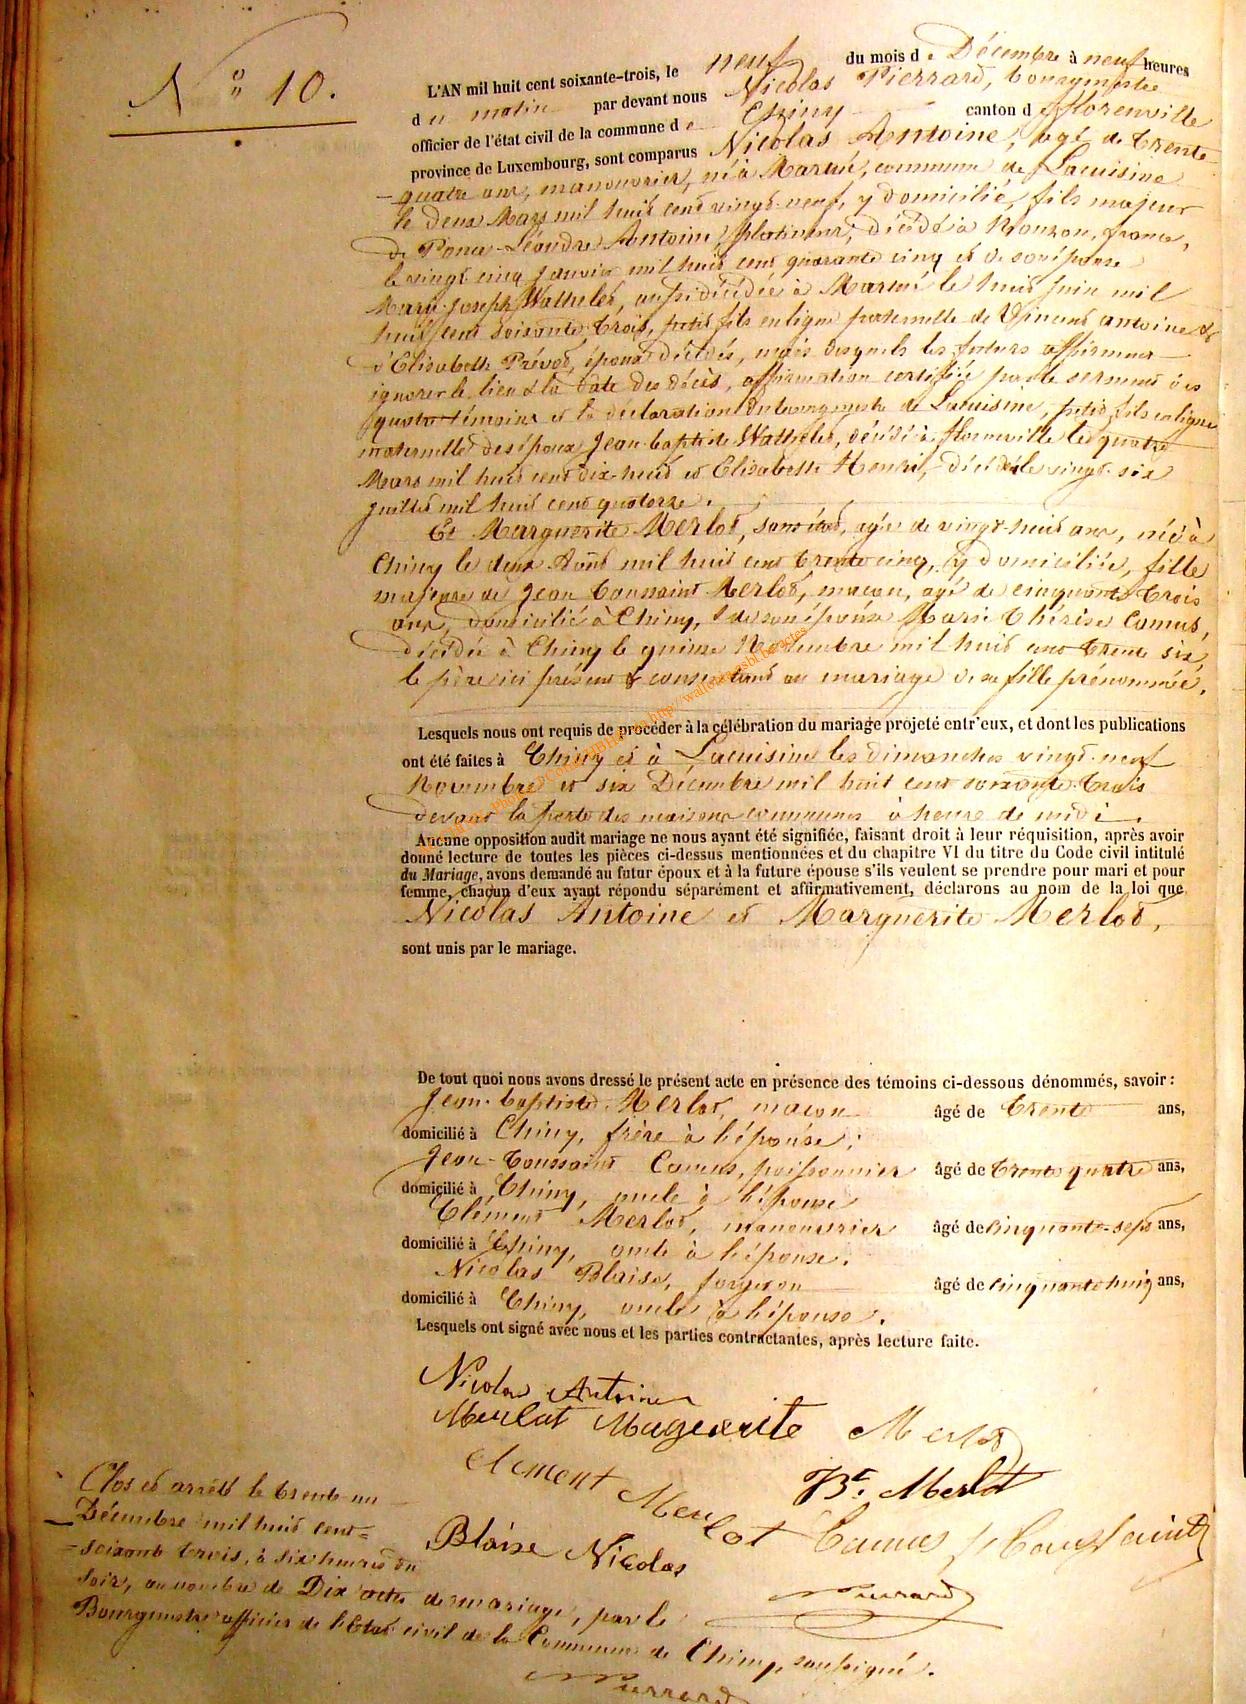 N° 10.
L'AN mil huit cent soixante-trois, le neuf du mois de Décembre à neuf heures
du matin par devant nous Nicolas Pierrard, bourgmestre
officier de l'état civil de la commune de Chiny canton de florenville
province de Luxembourg, sont comparus Nicolas Antoine, agé de trente
quatre ans, manouvrier, né à Martué, commune de Lacuisine
le deux Mars mil huit cent vingt-neuf, y domicilié, fils majeur
de Ponce Léandre Antoine, décédé à Mouzon, france,
le vingt cinq Janvier mil huit cent quarante cinq et de son épouse
Marie-Joseph Wathelet, aussi décédée à Martué le huit Juin mil
huit cent soixante trois, petit fils en ligne paternelle de Vincent antoine &
d'Elisabeth Prévot, époux décédés, mais desquels les futurs affirment
ignorer le lieu & la date des décès, affirmation certifiée par le serment des
quatre témoins et la déclaration du bourgmestre de Lacuisine, petit fils en ligne
maternelle des époux Jean-baptiste Wathelet, décédé à florenville le quatre
Mars mil huit cent dix-huit et Elisabeth Henri, décédée le vingt-six
Juillet mil huit cent quatorze.
Et Marguerite Merlot, sans état, agée de vingt-huit ans, née à
Chiny le deux Août mil huit cent trente cinq, y domiciliée, fille
majeure de Jean Toussaint Merlot, maçon, agé de cinquante trois
ans, domicilié à Chiny, & de son épouse Marie Thérèse Camus,
décédée à Chiny le quinze Novembre mil huit cent trente six,
le père ici présent & consentant au mariage de sa fille prénommée.
Lesquels nous ont requis de procéder à la célébration du mariage projeté entr'eux, et dont les publications
ont été faites à Chiny et à Lacuisine les dimanches vingt-neuf
Novembre et six Décembre mil huit cent soixante-trois
devant la porte des maisons communes à heure de midi.
Aucune opposition audit mariage ne nous ayant été signifiée, faisant droit à leur réquisition, après avoir
donné lecture de toutes les pièces ci-dessus mentionnées et du chapitre VI du titre du Code civil intitulé
du Mariage, avons demandé au futur époux et à la future épouse s'ils veulent se prendre pour mari et pour
femme, chaçun d'eux ayant répondu séparément et affirmativement, déclarons au nom de la loi que
Nicolas Antoine et Marguerite Merlot,
sont unis par le mariage.
De tout quoi nous avons dressé le présent acte en présence des témoins ci-dessous dénommés, savoir :
Jean-baptiste Merlot, maçon âgé de trente ans,
domicilié à Chiny, frère à l'épouse ;
Jean-Toussaint Camus, poissonnier âgé de trente quatre ans,
domicilié à Chiny, oncle à l'épouse
Clément Merlot, manouvrier âgé de cinquante-sept ans,
domicilié à Chiny, oncle à l'épouse.
Nicolas Blaise, forgeron âgé de cinquante huit ans,
domicilié à Chiny, oncle à l'épouse.
Lesquels ont signé avec nous et les parties contractantes, après lecture faite.
Nicolas Antoine
Merlat Magerite Merlot
Clement Merlot Bt. Merlot
Blaise Nicolas Camus J Toussaint
Pierrard
Clos et arrêté le trente-un
Décembre mil huit cent
soixante trois, à six heures du
soir, au nombre de Dix actes de mariage, par le
Bourgmestre officier de l'Etat civil de la Commune de Chiny, soussigné.
Pierrard